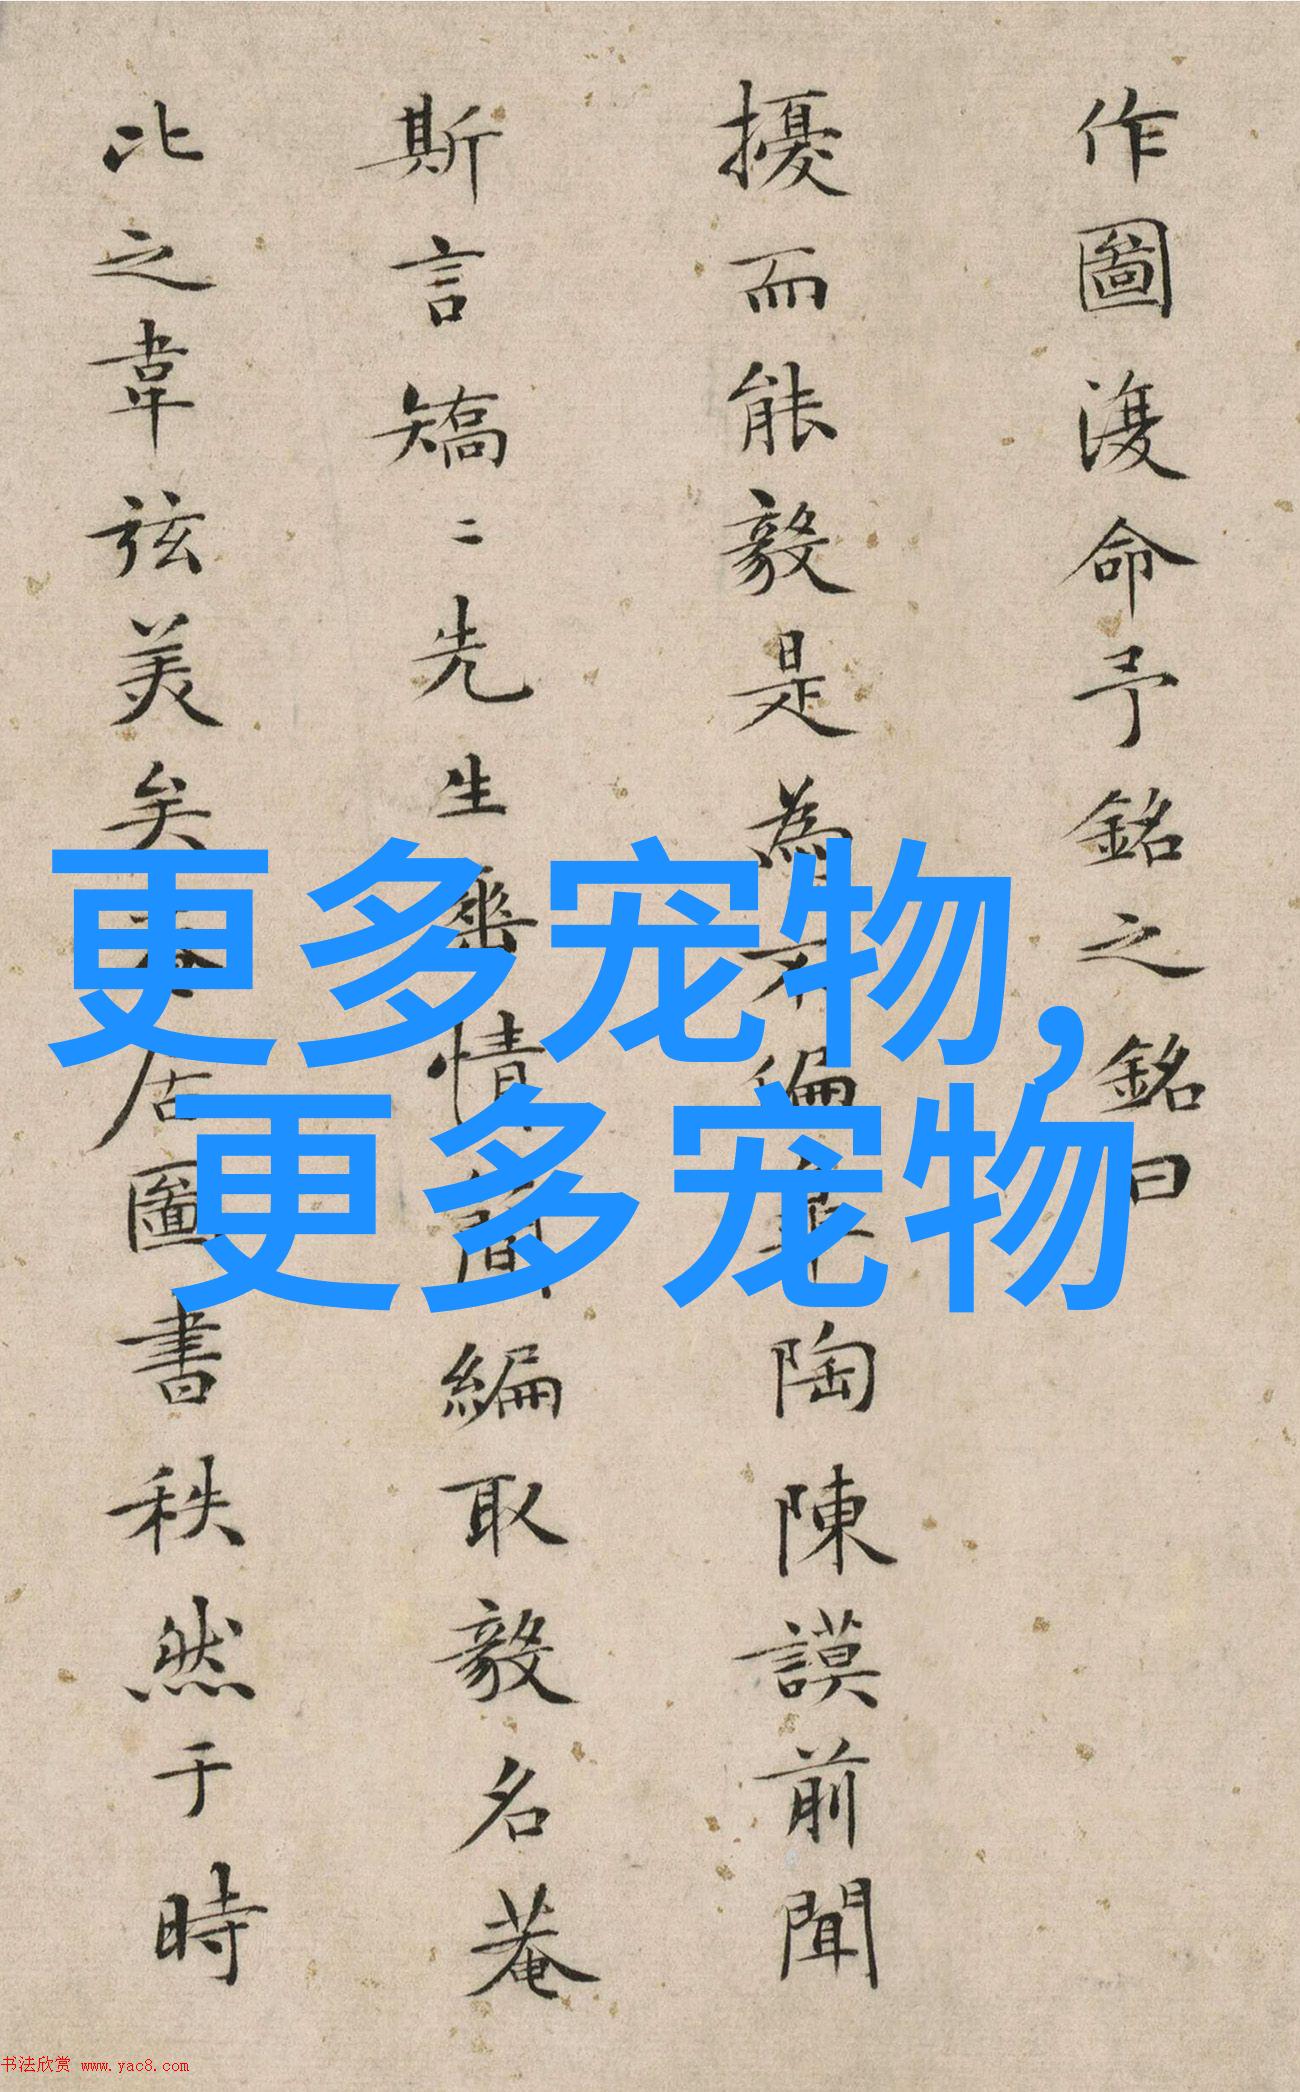 作圖復命予銘之銘曰
擾而能毅是為不編皋陶陳謨前聞
斯言矯二先生燕情簡編取毅名菴
比之韋弦美矣居圖書秩然于時
更多宠物,
更多宠物
书法欣赏 www.yac8.com